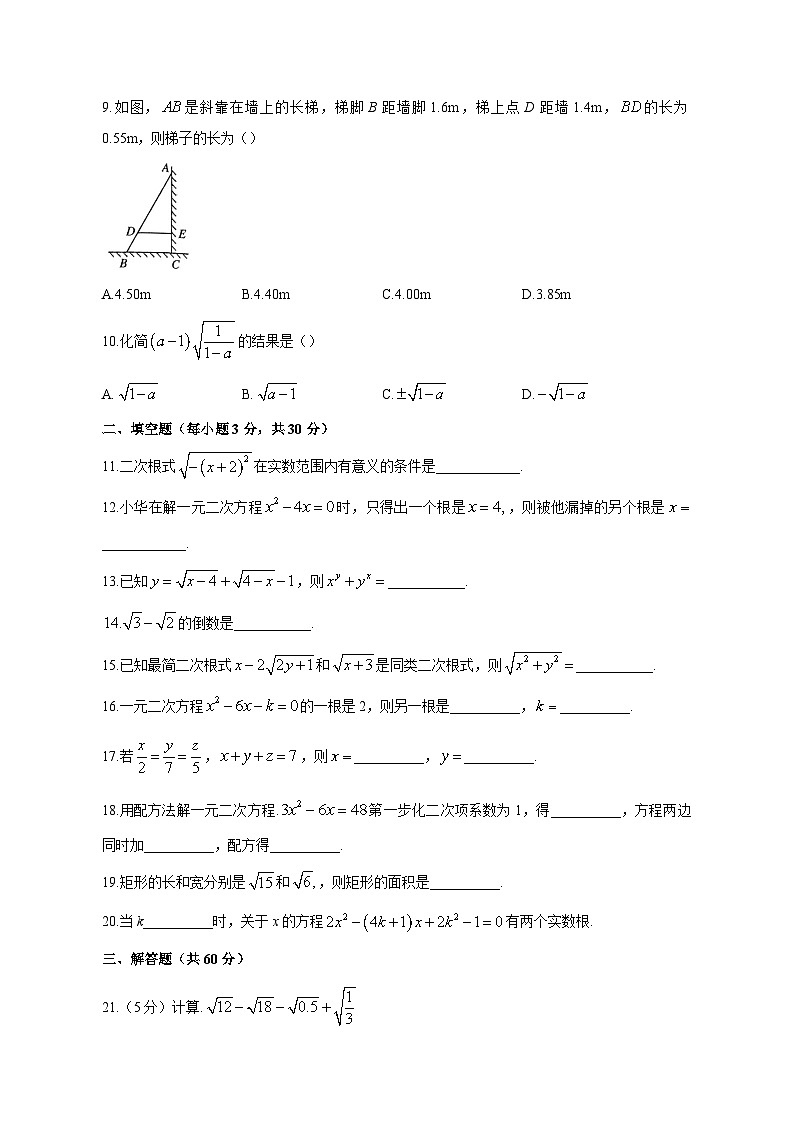 9.如图，AB是斜靠在墙上的长梯，梯脚B距墙脚1.6m，梯上点D距墙1.4m，BD的长为
0.55m，则梯子的长为()
A
D
E
B
C
A.4.50m B.4.40m C.4.00m D.3.85m
10.化简(a−1)√(1/(1−a))的结果是()
A. √(1−a) B. √(a−1) C. ±√(1−a) D. −√(1−a)
二、填空题（每小题3分，共30分）
11.二次根式√(−(x+2)²)在实数范围内有意义的条件是____________.
12.小华在解一元二次方程x²−4x=0时，只得出一个根是x=4,，则被他漏掉的另个根是x=
____________.
13.已知y=√(x−4)+√(4−x)−1，则x^y+y^x=___________.
14.√3−√2的倒数是___________.
15.已知最简二次根式x−2√(2y+1)和√(x+3)是同类二次根式，则√(x²+y²)=___________.
16.一元二次方程x²−6x−k=0的一根是2，则另一根是__________，k=__________.
17.若x/2=y/7=z/5，x+y+z=7，则x=__________，y=__________.
18.用配方法解一元二次方程.3x²−6x=48第一步化二次项系数为1，得__________，方程两边
同时加__________，配方得__________.
19.矩形的长和宽分别是√15和√6,，则矩形的面积是__________.
20.当k__________时，关于x的方程2x²−(4k+1)x+2k²−1=0有两个实数根.
三、解答题（共60分）
21.（5分）计算.√12−√18−√0.5+√(1/3)